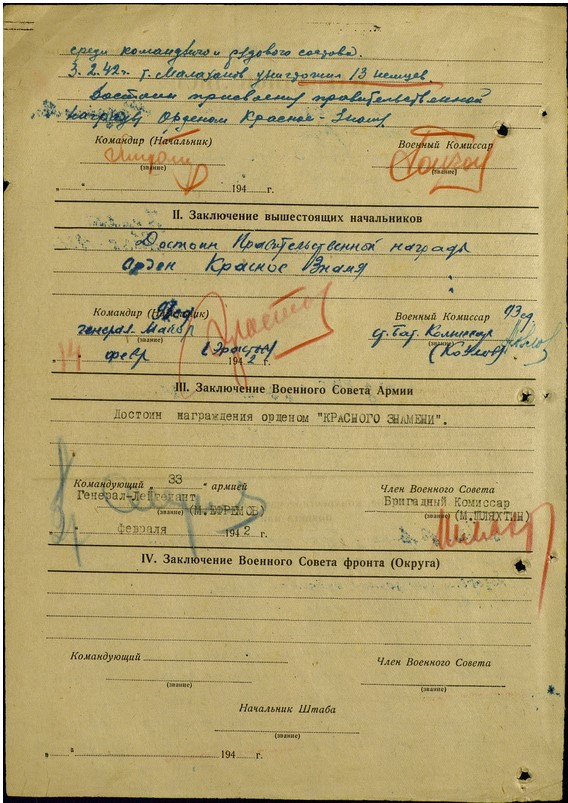 среди командного и рядового состава.
3.2.42г. т. Малаханов уничтожил 13 немцев.
Достоин присвоения правительственной
награды Орденом Красное-Знамя
Командир (Начальник) Военный Комиссар
(звание) (звание)
" " 194 г.
II. Заключение вышестоящих начальников
Достоин Правительственной награды
Орден Красное Знамя
Командир (Начальник) 93 сд Военный Комиссар 93 сд
генерал-майор ст. бат. Комиссар
(звание) (звание)
14 февр (Эрастов) 1942 г. (Козлов)
III. Заключение Военного Совета Армии
Достоин награждения орденом "КРАСНОГО ЗНАМЕНИ".
Командующий 33 армией Член Военного Совета
Генерал-Лейтенант Бригадный Комиссар
(звание) (М.ЕФРЕМОВ) (звание) (М.ШЛЯХТИН)
" " февраля 1942 г.
IV. Заключение Военного Совета фронта (Округа)
Командующий Член Военного Совета
(звание) (звание)
Начальник Штаба
(звание)
" " 194 г.